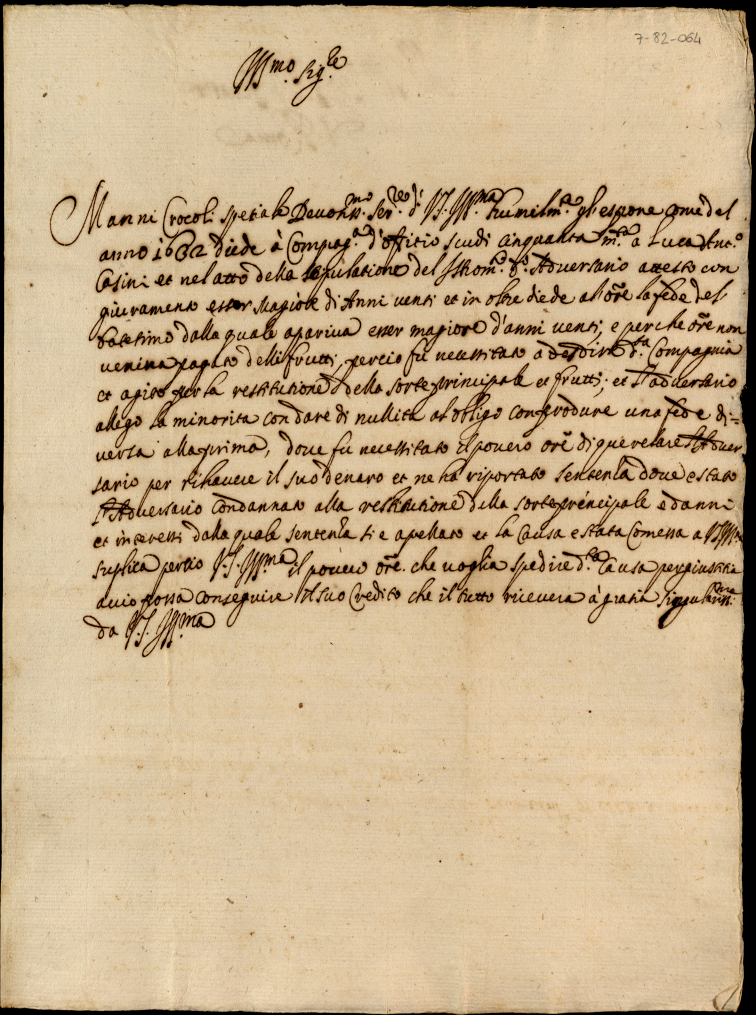 7-82-064
Ill.mo Sig.re
Manni Crocoli spetiale Devotiss.mo Ser.re d. V.S. Ill.ma humilm.te gl'espone come del
anno 1682 diede à Compag.a d'offitio scudi cinquanta m.ta a Luca Ant.o
Casini et nel atto della stipulatione del Istrom.to d.o Adversario attesto con
giuramento esser magiore di Anni venti et in oltre diede al'ore la fede del
batesimo dalla quale apariva esser magiore d'anni venti; e perche ore non
veniva pagato delli frutti, percio fù necessitato a desdire d.ta Compagnia
et agito per la restitutione della sorte principale et frutti; et l'adversario
allego la minorita con dare di nullita al obligo con produre una fede di=
versa alla prima, dove fu necessitato il povero ore di querelare l'Adver
sario per rihavere il suo denaro et ne ha riportato sentenza dove e stato
l'Adversario condannato alla restitutione della sorte principale e danni
et interessi dalla quale sentenza si e apellato et la Causa e stata Comessa a V.S. Ill.ma
suplica percio V.S. Ill.ma il povero ore. che voglia spedire d.ta Causa per giustitia
acio possa conseguire il suo Credito che il tutto ricevera à gratia singulariss.ma
da V.S. Ill.ma